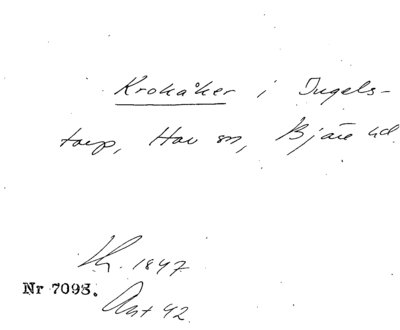 Krokåker i Ingels-
torp, Hov sn, Bjäre hd
Kr. 1847
Nr 7093.
Ant 42